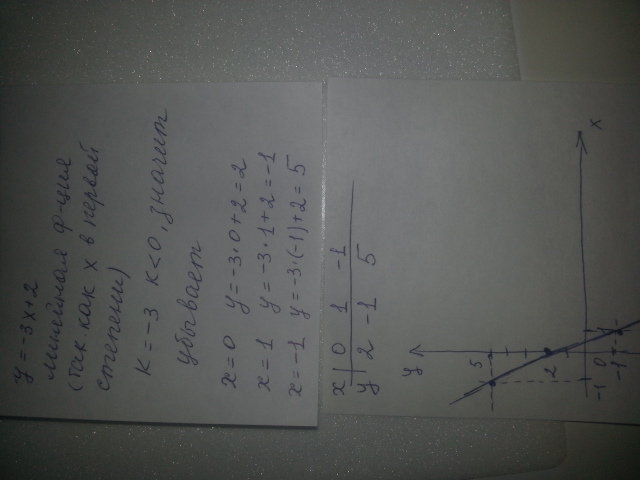 y = -3x+2
линейная ф-ция
(так как x в первой
степени)
K = -3 K<0, значит
убывает
x=0 y=-3·0+2=2
x=1 y=-3·1+2=-1
x=-1 y=-3·(-1)+2=5
x | 0 1 -1
y | 2 -1 5
y
5
2
-1 0 1
-1
x